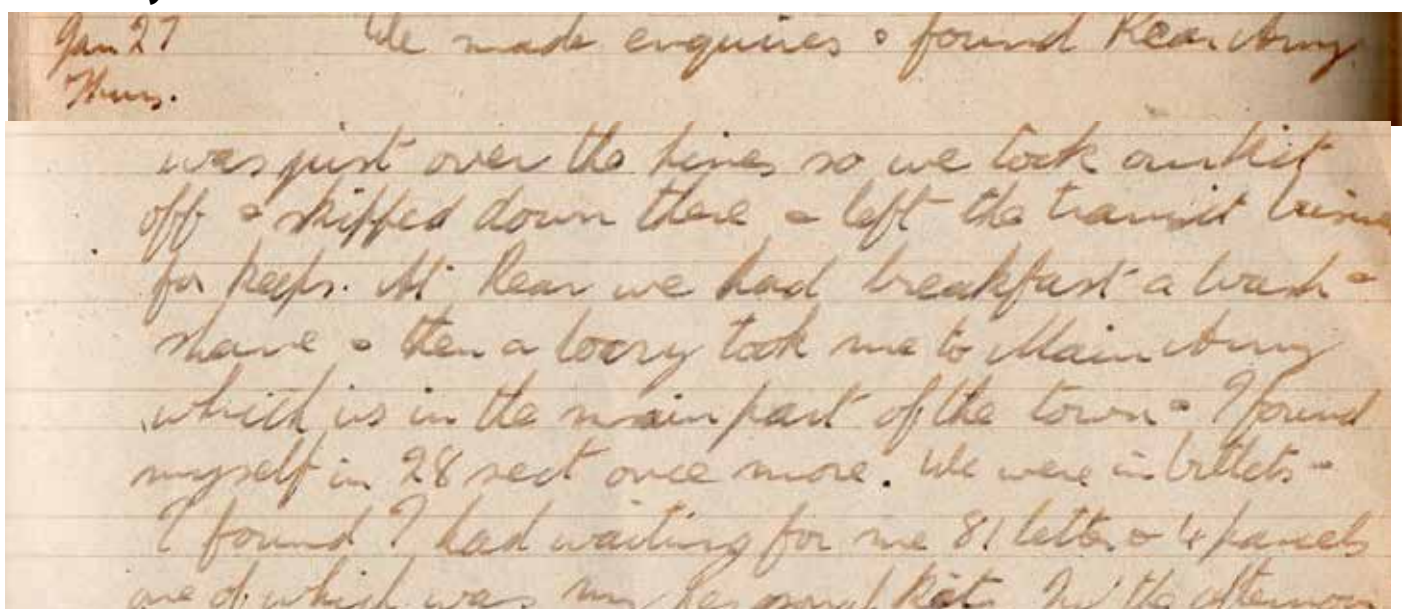 Jan 27 We made enquiries & found Rear Army
Thurs.
was just over the lines so we took our kit
off & skipped down there & left the transit
for keeps. At Rear we had breakfast a wash &
shave & then a lorry took me to Main Army
which is in the main part of the town & I found
myself in 28 sect once more. We were in billets &
I found I had waiting for me 81 letters & 4 parcels
one of which was my personal kit. In the afternoon